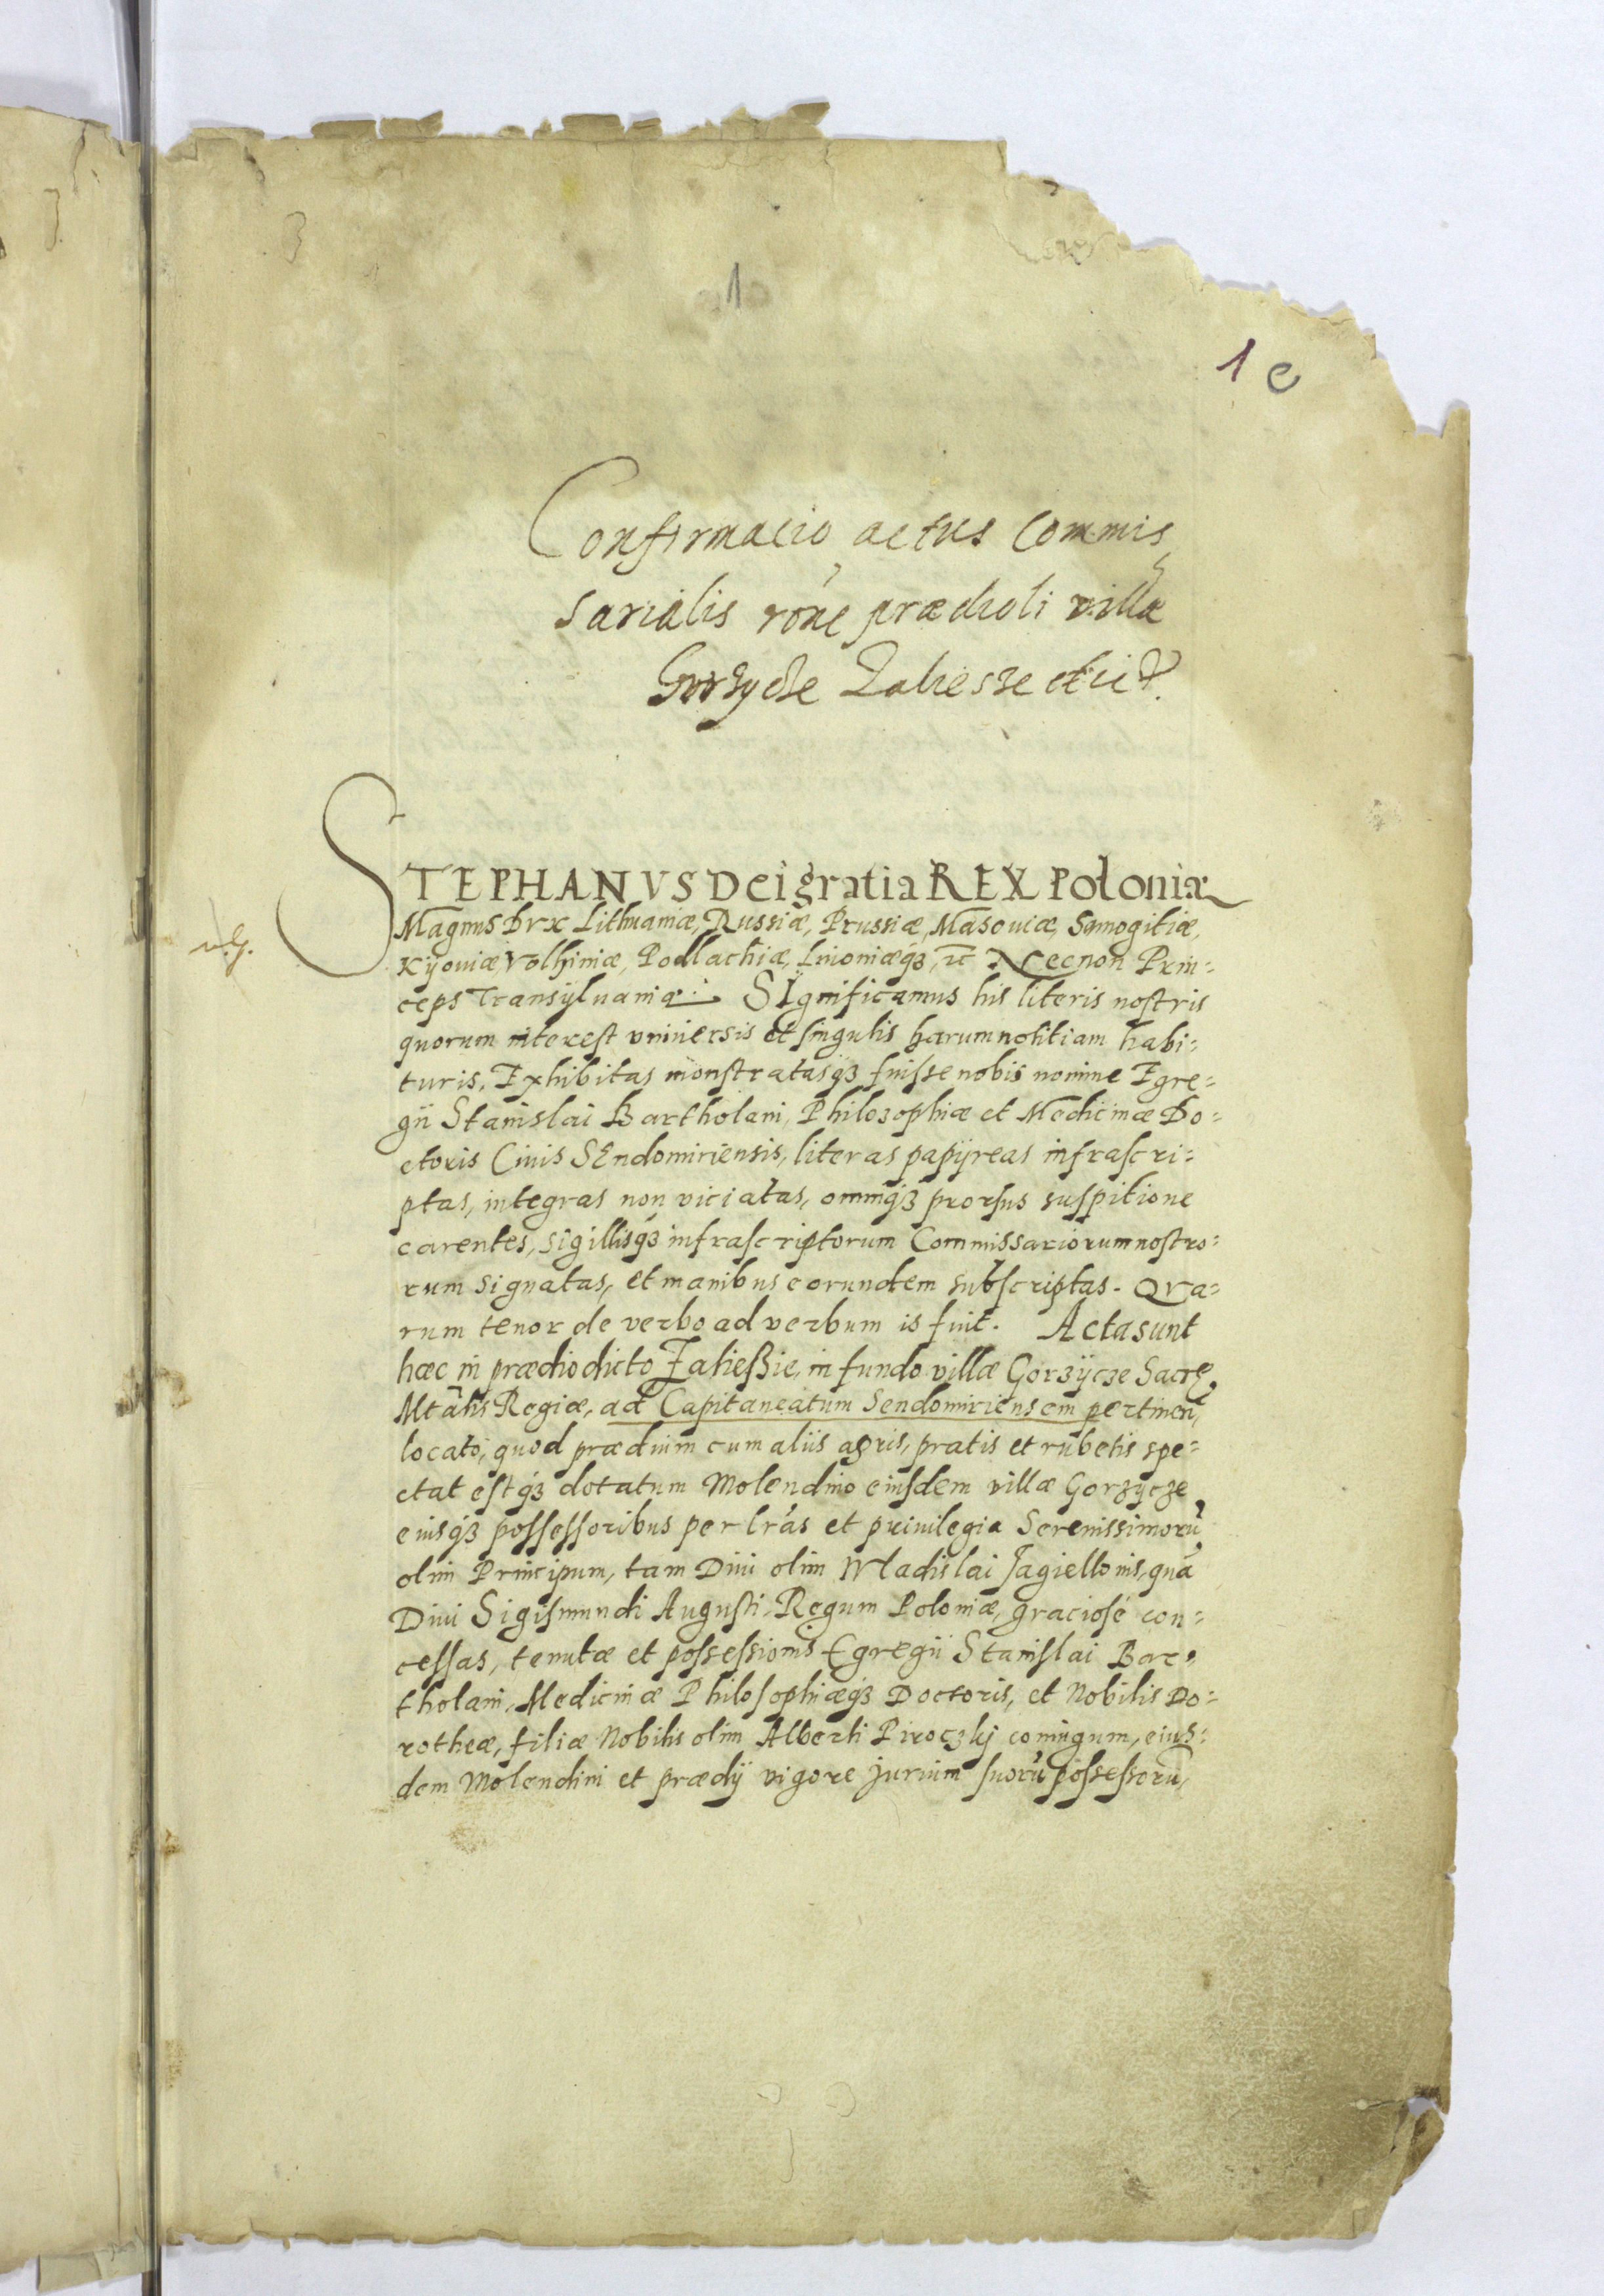 1
1 e
Confirmacio actus Commis
sarialis rōne prædioli villæ
Gorzycze Zaliesze
STEPHANVS Dei gratia REX Poloniæ
Magnus Dvx Lithuaniæ, Russiæ, Prussiæ, Masouiæ, Samogitiæ,
Kijouiæ, Volhiniæ, Podlachiæ, Liuoniæqꝫ, ꝛc Necnon Prin:
ceps Transÿluaniæ. SIgnificamus his literis nostris
quorum interest vniuersis et singulis harum notitiam habi:
turis, Exhibitas monstratasqꝫ fuisse nobis nomine Egre:
gii Stanislai Bartholani, Philozophiæ et Medicinæ Do:
ctoris Ciuis SEndomiriensis, literas papijreas infrascri:
ptas, integras non viciatas, omniqꝫ prorsus suspitione
carentes, sigillisqꝫ infrascriptorum Commissariorum nostro:
rum signatas, et manibus eorundem subscriptas. Qva:
rum tenor de verbo ad verbum is fuit. Acta sunt
hæc in prædio dicto Zaliessie, in fundo villæ Gorzÿcze Sacrę
Mtātis Regiæ, ad Capitaneatum Sendomiriensem pertinen,
locato, quod prædium cum aliis agris, pratis et rubetis spe:
ctat estqꝫ dotatum Molendino eiusdem villæ Gorzycze,
eiusqꝫ possessoribus per lrās et priuilegia Serenissimorū
olim Principum, tam Diui olim Wladislai Jagiellonis, quā
Diui Sigismundi Augusti, Regum Poloniæ, graciosé con:
cessas, tenutæ et possessionis Egregii Stanislai Bar:
tholani, Medicinæ Philosophiæqꝫ Doctoris, et Nobilis Do:
rotheæ, filiæ Nobilis olim Alberti Piroczkij coniugum, eius:
dem Molendini et prædij vigore jurium suorū possessorū,